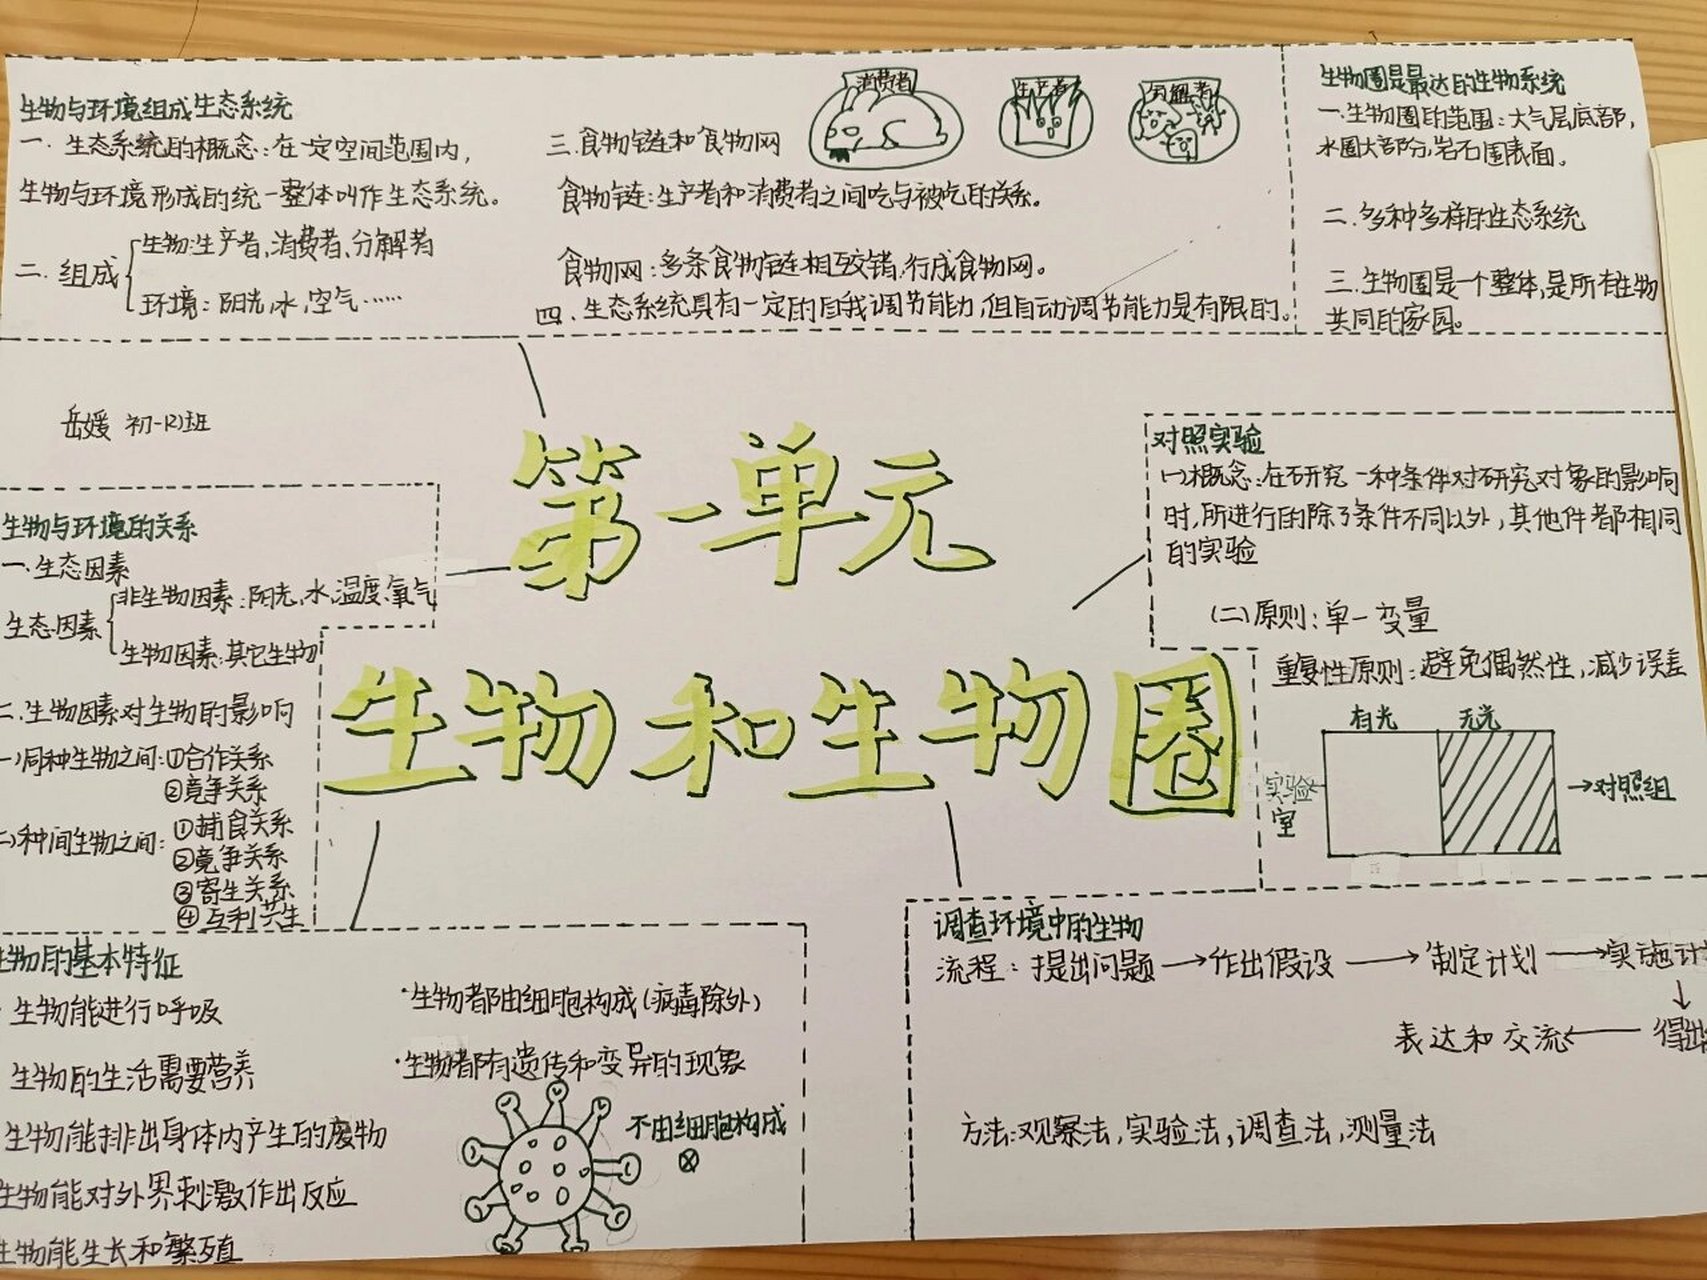 生物与环境组成生态系统
一、生态系统的概念：在一定空间范围内，
生物与环境形成的统一整体叫作生态系统。
二、组成
生物：生产者，消费者，分解者
环境：阳光，水，空气……
三、食物链和食物网
消费者
生产者
分解者
食物链：生产者和消费者之间吃与被吃的关系。
食物网：多条食物链相互交错，行成食物网。
四、生态系统具有一定的自我调节能力，但自动调节能力是有限的。
生物圈是最达的生物系统
一、生物圈的范围：大气层底部，
水圈大部分，岩石圈表面。
二、多种多样的生态系统
三、生物圈是一个整体，是所有生物
共同的家园。
岳媛 初一(2)班
第一单元
生物和生物圈
生物与环境的关系
一、生态因素
生态因素
非生物因素：阳光，水，温度，氧气
生物因素：其它生物
二、生物因素对生物的影响
(一)同种生物之间：①合作关系
②竞争关系
(二)种间生物之间：①捕食关系
②竞争关系
③寄生关系
④互利共生
对照实验
(一)概念：在研究一种条件对研究对象的影响
时，所进行的除了条件不同以外，其他件都相同
的实验
(二)原则：单一变量
重复性原则：避免偶然性，减少误差
有光 无光
实验室
→对照组
生物的基本特征
生物能进行呼吸
生物的生活需要营养
生物能排出身体内产生的废物
生物能对外界刺激作出反应
生物能生长和繁殖
·生物都由细胞构成(病毒除外)
·生物都有遗传和变异的现象
不由细胞构成
调查环境中的生物
流程：提出问题→作出假设→制定计划→实施计
↓
表达和交流←得出
方法：观察法，实验法，调查法，测量法